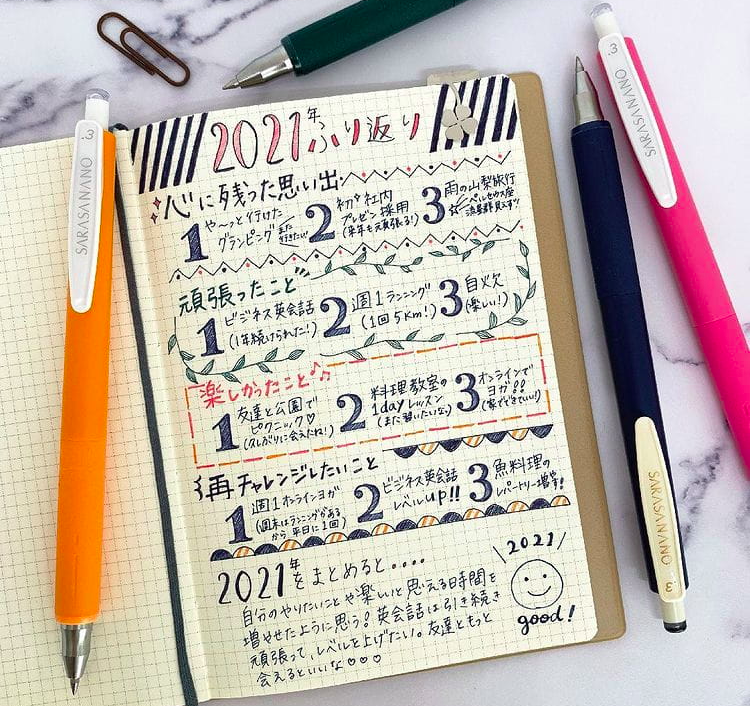 2021年ふり返り
心に残った思い出
1 や〜っと行けた
グランピング
また
行きたい!
2 初!社内
プレゼン採用
(来年も頑張る!)
3 雨の山梨旅行
ペルセウス座
流星群見えず
頑張ったこと
1 ビジネス英会話
(1年続けられた!)
2 週1ランニング
(1回5km!)
3 自炊
(楽しい!)
楽しかったこと♪♪
1 友達と公園で
ピクニック♡
(久しぶりに会えたね!)
2 料理教室の
1dayレッスン
(また習いたいな)
3 オンラインで
ヨガ!!
(家でできていい!)
再チャレンジしたいこと
1 週1オンラインヨガ
(週末はランニングがある
から平日に1回)
2 ビジネス英会話
レベルup!!
3 魚料理の
レパートリー増やす!
2021年をまとめると....
自分のやりたいことや楽しいと思える時間を
増やせたように思う!英会話は引き続き
頑張って、レベルを上げたい。友達ともっと
会えるといいな♡♡♡
\2021/
good!
.3
SARASANANO
.3
SARASANANO
SARASANANO
.3